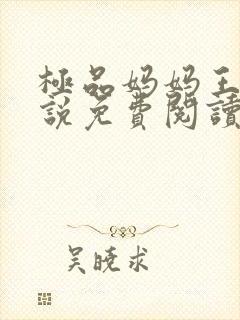 極品妈妈王
說免費閱讀
吴晓求